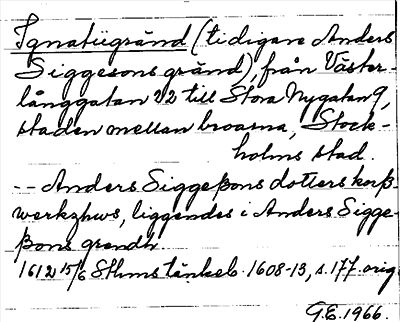 Ignatiigränd (tidigare Anders
Siggesons gränd), från Väster-
långgatan 22 till Stora Nygatan 9,
staden mellan broarna, Stock-
holms stad.
-- Anders Siggeßons dotters korß-
werkzhws, liggendes i Anders Sigge-
ßons grendh
1612 15/6 Sthms tänkeb. 1608-13, s. 177. orig.
G.E. 1966.